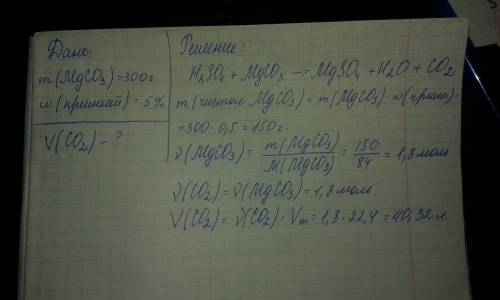 Дано:
m(MgCO3)=300г
w(примесей)=5%
V(CO2)-?
Решение:
H2SO4+MgCO3→MgSO4+H2O+CO2
m(чистого MgCO3)=m(MgCO3)·w(примес)=
=300·0,5=150г.
ν(MgCO3)=m(MgCO3)/M(MgCO3)=150/84=1,8моль
ν(CO2)=ν(MgCO3)=1,8моль.
V(CO2)=ν(CO2)·Vm=1,8·22,4=40,32л.